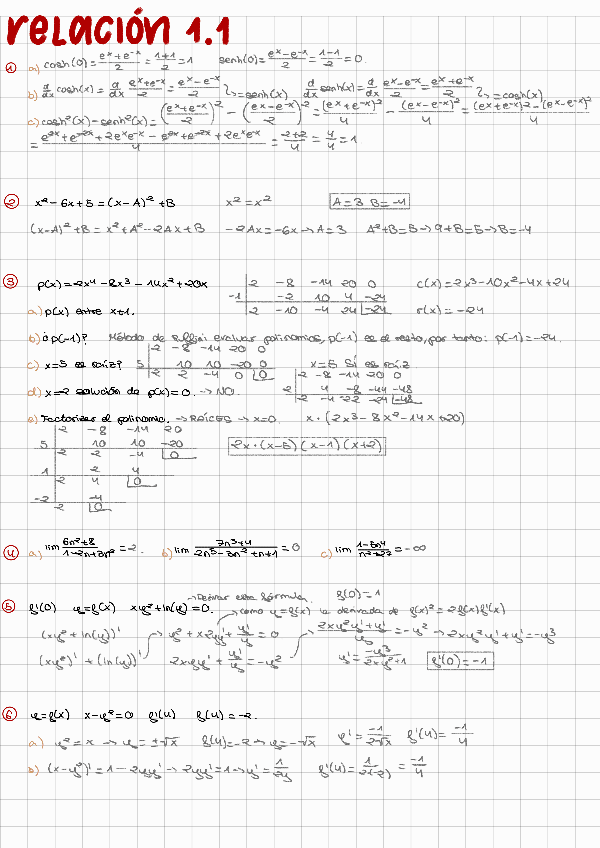 relación 1.1
1 a) cosh(0) = (e^x + e^-x)/2 = (1+1)/2 = 1 senh(0) = (e^x - e^-x)/2 = (1-1)/2 = 0.
b) d/dx cosh(x) = d/dx (e^x + e^-x)/2 = (e^x - e^-x)/2 ↳ = senh(x) d/dx senh(x) = d/dx (e^x - e^-x)/2 = (e^x + e^-x)/2 ↳ = cosh(x)
c) cosh²(x) - senh²(x) = ((e^x + e^-x)/2)² - ((e^x - e^-x)/2)² = (e^x + e^-x)²/4 - (e^x - e^-x)²/4 = ((e^x + e^-x)² - (e^x - e^-x)²)/4
= (e^2x + e^-2x + 2e^x e^-x - e^2x + e^-2x + 2e^x e^-x)/4 = (2+2)/4 = 4/4 = 1
2 x² - 6x + 5 = (x-A)² + B x² = x² A = 3 B = -4
(x-A)² + B = x² + A² - 2Ax + B -2Ax = -6x → A = 3 A² + B = 5 → 9 + B = 5 → B = -4
3 p(x) = 2x⁴ - 8x³ - 14x² + 20x 2 -8 -14 20 0 c(x) = 2x³ - 10x² - 4x + 24
-1 -2 10 4 -24
a) p(x) entre x+1. 2 -10 -4 24 -24 r(x) = -24
b) ¿p(-1)? Método de Ruffini: evaluar polinomios, p(-1) es el resto, por tanto: p(-1) = -24.
2 -8 -14 20 0
c) x=5 es raíz? 5 10 10 -20 0 x=5 Sí es raíz
2 2 -4 0 0 2 -8 -14 20 0
d) x=-2 solución de p(x)=0. → NO. 2 4 -8 -44 -48
2 -4 -22 -24 -48
e) Factorizar el polinomio. → RAÍCES → x=0. x · (2x³ - 8x² - 14x + 20)
2 -8 -14 20
5 10 10 -20
2 2 -4 0 2x · (x-5)(x-1)(x+2)
1 2 4
2 4 0
-2 -4
2 0
4 a) lim (6n²+8)/(1-2n+3n²) = 2. b) lim (7n³+4)/(2n⁵-3n²+n+1) = 0 c) lim (1-5n⁴)/(n²+27) = -∞
→ Derivar esta fórmula. f(0) = 1
5 f'(0) y = f(x) xy² + ln(y) = 0. → como y = f(x) la derivada de f(x)² = 2f(x)f'(x)
(xy² + ln(y))' → y² + x2yy' + y'/y = 0 → (2xy²y' + y')/y = -y² → 2xy²y' + y' = -y³
(xy²)' + (ln(y))' 2xyy' + y'/y = -y² y' = -y³/(2xy²+1) f'(0) = -1
6 y = f(x) x - y² = 0 f'(4) f(4) = -2.
a) y² = x → y = ±√x f(4) = -2 → y = -√x f' = -1/(2√x) f'(4) = -1/4
b) (x-y²)' = 1 - 2yy' → 2yy' = 1 → y' = 1/2y f'(4) = 1/2(-2) = -1/4